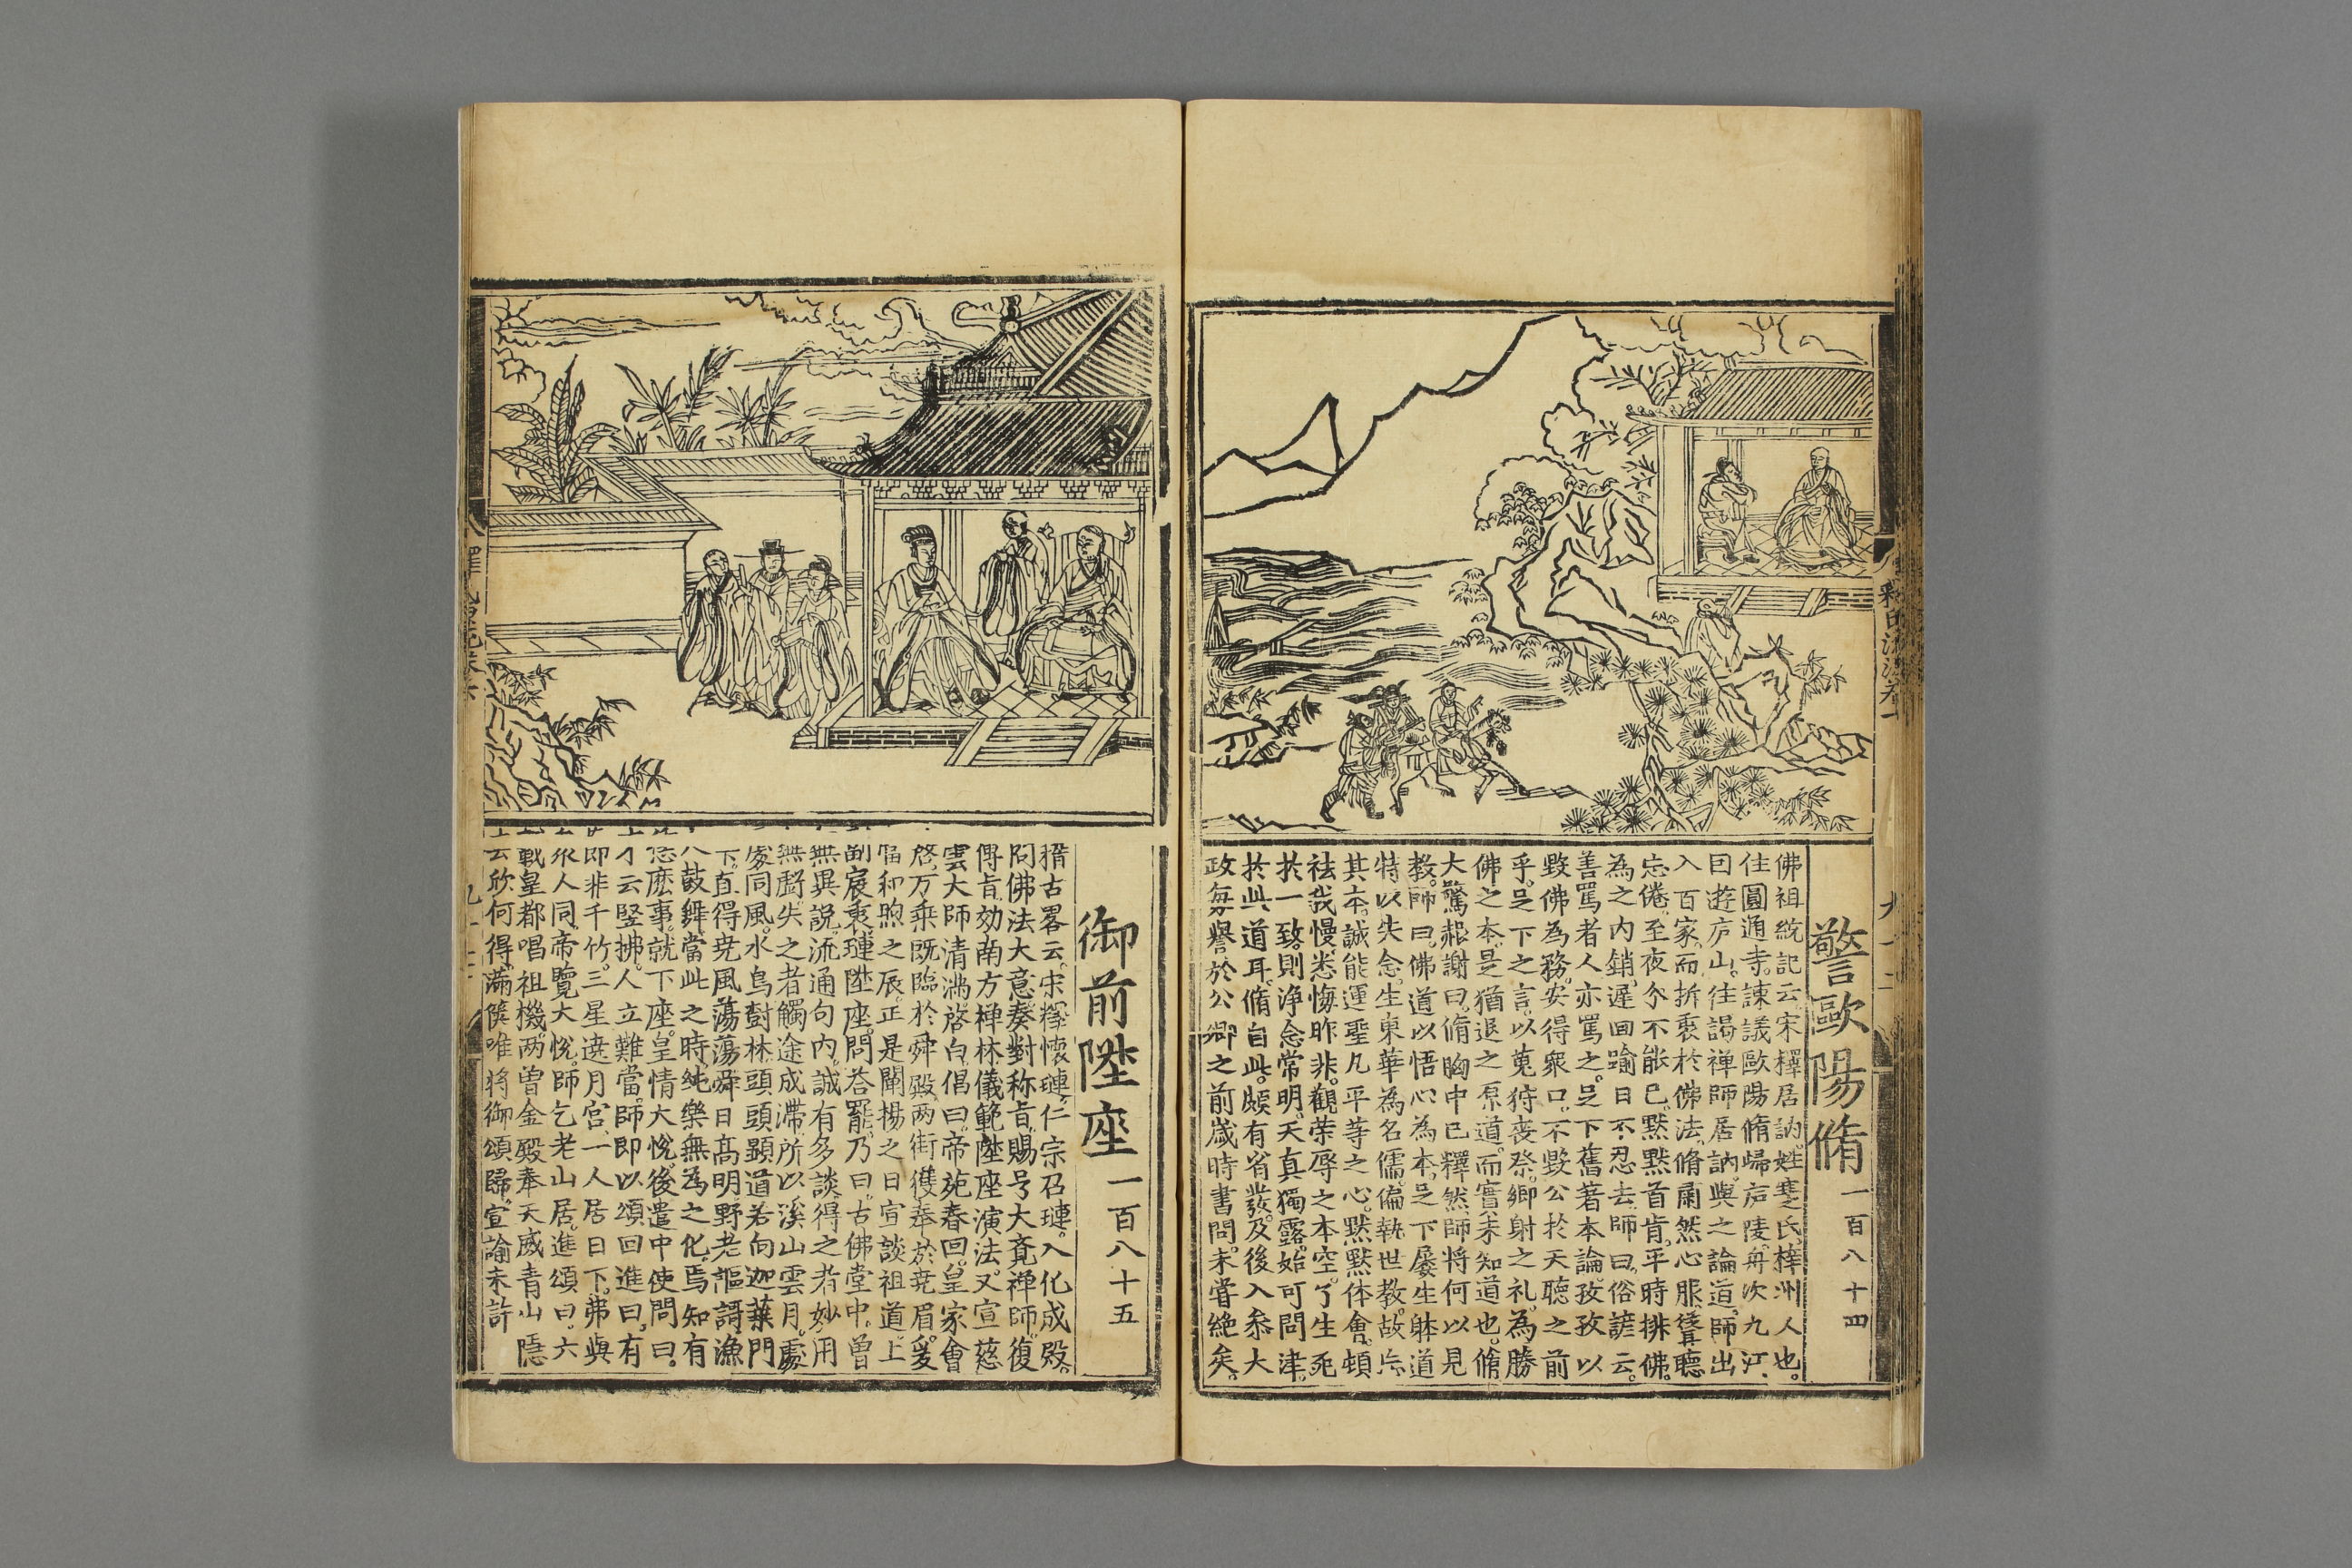 警歐陽脩一百八十四
佛祖統記云宋釋居訥。姓蹇氏梓洲人也。
住圓通寺。諫議歐陽脩歸庐陵。舟次九江、
因遊庐山。往謁禅師居訥。與之論道。師出
入百家。而拆衷於佛法。脩肅然心服聳聽
忘倦。至夜分不能已。默默首肯。平時排佛。
為之内銷。遲回踰日不忍去。師曰。俗諺云。
善罵者人亦罵之。足下舊著本論。孜孜以
毀佛為務。安得衆口。不毀公於天聽之前
乎。足下之言。以蒐狩喪祭。鄉射之礼。為勝
佛之本。是猶退之原道。而實未知道也。脩
大驚赧謝曰。脩胸中已釋然師將何以見
教。師曰。佛道以悟心為本。足下屡生躰道
特以失念。生東華為名儒。偏執世教。故忘
其本。誠能運聖凡平等之心。默默体會。頓
祛我慢。悉悔昨非。觀荣辱之本空。了生死
於一致。則浄念常明。天真獨露。始可問津。
於此道耳。脩自此。頗有省發。及後入叅大
政每譽於公卿之前歲時書問。未嘗絶矣。
御前陞座一百八十五
稽古畧云。宋釋懷璉。仁宗召璉。入化成殿。
問佛法大意。奏對称旨。賜号大竟禅師。復
傳旨。効南方禅林儀範。陞座演法。又宣慈
雲大師清滿。啓白。倡曰。帝苑春回。皇家會
啓。万乘既臨於舜殿。两街獲奉於尭眉。爰
當和煦之辰。正是闡揚之日宣談祖道。上
副宸衷。璉陞座。問荅罷。乃曰。古佛堂中。曾
無異説。流通句内。誠有多談。得之者妙用
無虧。失之者觸途成滯。所以溪山雲月。處
處同風。水鸟樹林。頭頭顕道。若向迦葉門
下。直得尭風蕩蕩。舜日髙明。野老謳謌。漁
人鼓舞。當此之時。純樂無為之化。焉知有
恁麽事。就下座。皇情大悅。後遣中使問曰。
才云竪拂。人立難當。師即以頌回進曰。有
節非千竹。三星遶月宫、一人居日下。弗與
衆人同。帝覽大悅。師乞老山居。進頌曰。六
載皇都唱祖機。两曾金殿奉天威青山隱
去欣何得。滿篋唯将御頌歸。宣諭未許